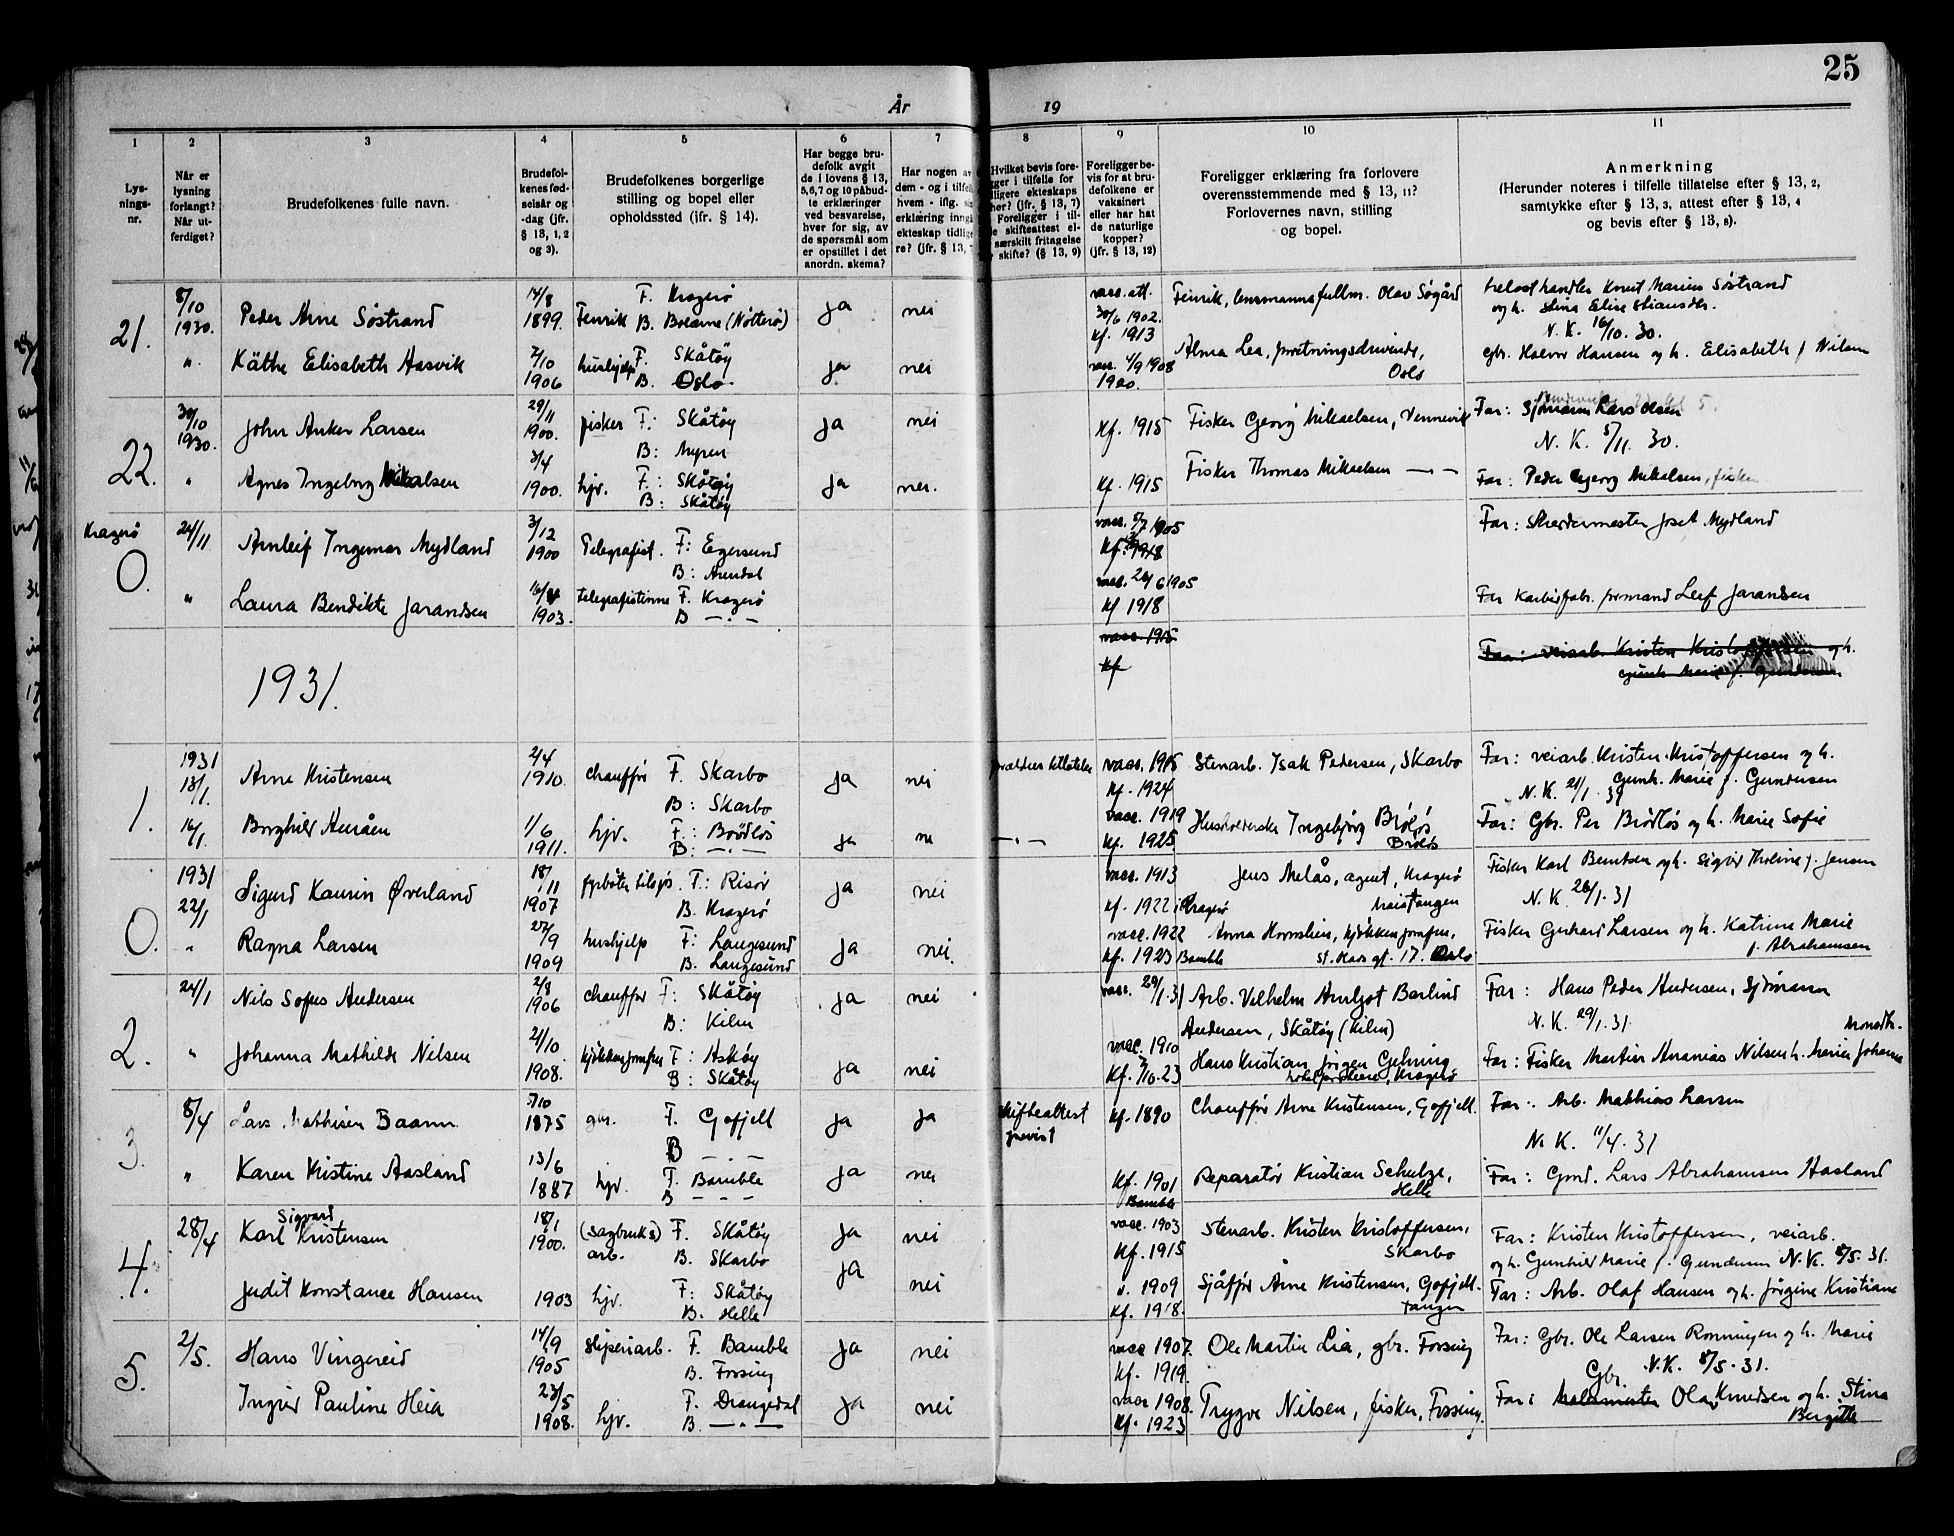 25
År 19
1 2 3 4 5 6 7 8 9 10 11
Lys-
nings-
nr.
Når er
lysning
forlangt?
Når ut-
ferdiget?
Brudefolkenes fulle navn.
Brudefol-
kenes fød-
selsår og
-dag (jfr.
§ 13, 1, 2
og 3).
Brudefolkenes borgerlige
stilling og bopel eller
opholdssted (jfr. § 14).
Har begge bru-
defolk avgit
de i lovens § 13,
5,6,7 og 10 påbud-
te erklæringer
ved besvarelse,
hver for sig, av
de spørsmål som
er opstillet i det
anordn. skema?
Har nogen av
dem - og i tilfelle
hvem - iflg. sin
erklæring inngåt
ekteskap tidlige-
re? (jfr. § 13, 7
Hvilket bevis fore-
gger i tilfelle for
lligere ekteskaps
her? (jfr. § 13, 7)
Foreligger i til-
e skifteattest el-
særskilt fritagelse
skifte? (§ 13, 9)
Foreligger be-
vis for at bru-
defolkene er
vaksinert
eller har hat
de naturlige
kopper?
(jfr. § 13, 12)
Foreligger erklæring fra forlovere
overensstemmende med § 13, 11?
Forlovernes navn, stilling
og bopel.
Anmerkning
(Herunder noteres i tilfelle tillatelse efter § 13, 2,
samtykke efter § 13, 3, attest efter § 13, 4
og bevis efter § 13, 8).
21. 8/10 1930. Peder Arne Söstrand 14/8 1899. Fenrik F. Kragerö B. Borærne (Nötterö) ja nei vacc. att. 30/6 1902. Kf. 1913 Fenrik, lensmannsfullm. Olav Søgård handler Knut Marius Söstrand
og h. Stina Elise
N. K. 16/10. 30.
" Käthe Elisabeth Aasvik 7/10 1906 hushjelp F. Skåtöy B. Oslo ja nei vacc. 4/9 1908 1920. Alma Lea, forretningsdrivende, Oslo gbr. Halvor Hansen og h. Elisabeth f Nilsen
22. 30/10 1930. John Anker Larsen 29/11 1900. fisker F: Skåtöy B: Myren ja nei Kf. 1915 Fisker Georg Mikaelsen, Vennevik Far: Sjömann Lars Olsen
N. K. 5/11. 30.
" Agnes Ingeborg Mikalsen 3/4 1900. hjv. F.: Skåtöy B: Skåtöy ja nei. Kf. 1915 Fisker Thomas Mikaelsen — " — Far: Peder Georg Mikalsen, fisker
Kragerö
0. 24/11 Arnleif Ingemar Mydland 3/12 1900 Telegrafist. F: Egersund B: Arendal vacc. 5/7 1905 Kf. 1918 Far: Skreddermester Josef Mydland
" Laura Bendikte Jarandsen 16/4 1903. telegrafistinne F. Kragerö B — " — vacc. 26/6 1905 Kf 1918 Far Karbidfabr. formand Leif Jarandsen
1931. vacc. 1915 Kf Far: veiarb. Kristen Kristoffersen og h.
Gunh. Marie f. Gundersen
1. 1931 13/1. Arne Kristensen 2/4 1910. chauffør F. Skarbo B: Skarbo ja nei tillatelse vacc. 1915 Kf. 1924 Stenarb. Isak Pedersen, Skarbo Far: veiarb. Kristen Kristoffersen og h.
Gunh. Marie f. Gundersen
N. K. 21/1. 31
16/1 Borghild 1/6 1911. hjv. F.: Brödlös B: — " — ja nei — " — vacc. 1919 Kf. 1925. Husholderske Ingebjörg Brödlös Far: Gbr. Per Brödlös og h. Marie Sofie
0. 1931 22/1 Sigurd Kaurin Øverland 18/11 1907 fyrböter F.: Risör B. Kragerö ja nei vacc. 1913 Kf. 1922 Kragerö Jens Melås, agent, Kragerö Fisker Karl Berntsen og h. Sigrid Tholine f. Jensen
N. K. 26/1. 31
" Ragna Larsen 27/9 1909 hushjelp F: Langesund B. Langesund ja nei. vacc. 1922 Kf. 1923 Bamble Anna kjökkenjomfru, St. Olavs gt. 17. Oslo Fisker Gerhard Larsen og h. Katrine Marie
f. Abrahamsen
2. 24/1 Nils Sofus Andersen 2/8 1906 chauffør F: Skåtöy B: Kilen ja nei vacc. 29/1. 31 Arb. Vilhelm Arnljot Berlind
Andersen, Skåtöy (Kilen) Far: Hans Peder Andersen, Sjömann
N. K. 29/1. 31.
" Johanna Mathilde Nilsen 21/10 1908. kjökkenjomfru F: Askøy B: Skåtöy ja nei vacc. 1910 Kf. 7/10. 23 Hans Kristian Jörgen Gehring
Kragerö Far: Fisker Martin Ananias Nilsen h. Marie Johanne
3. 8/4 Lars Mathisen Baann 7/10 1875 F. Gofjell B — " — ja ja skifteattest
previst Kf. 1890 Chauffør Arne Kristensen, Gofjell. Far: Arb. Mathias Larsen
N. K. 11/4. 31
" Karen Kristine Aasland 13/6 1887 hjv. F. Bamble B — " — ja nei Kf. 1901 Bamble Reparatør Kristian Schulze,
Helle Far: Gmd. Lars Abrahamsen Aasland
4. 28/4 Karl Sigvard Kristensen 18/1 1900. (sagbruks)
arb. F. Skåtöy B. Skarbo ja nei vacc. 1903 Kf. 1915 Stenarb. Kristen Kristoffersen,
Skarbo Far: Kristen Kristoffersen, veiarb.
og h. Gunhild Marie f. Gundersen N. K. 8/5. 31.
Judit Konstance Hansen 1903 hjv. F: Skåtöy B. Helle ja nei v. 1909 Kf. 1918. Sjåfför Arne Kristensen, Gofjell.
tangen Far: Arb. Olaf Hansen og h. Jörgine Kristiane
5. 2/5. Hans Vingereid 14/9 1905 sliperiarb. F. Bamble B. Fossing ja nei vacc 1907. Kf. 1919. Ole Martin Lia, gbr. Fossing Far: Gbr. Ole Larsen Rönningen og h. Marie
N. K. 8/5. 31.
Ingrid Pauline Heia 23/5 1908. hjv. F. Drangedal B. — " — ja nei vacc 1908. Kf. 1923 Trygve Nilsen, fisker, Fossing. Far: Gbr. Malermester Olav Knudsen og h. Stina
Bergitte